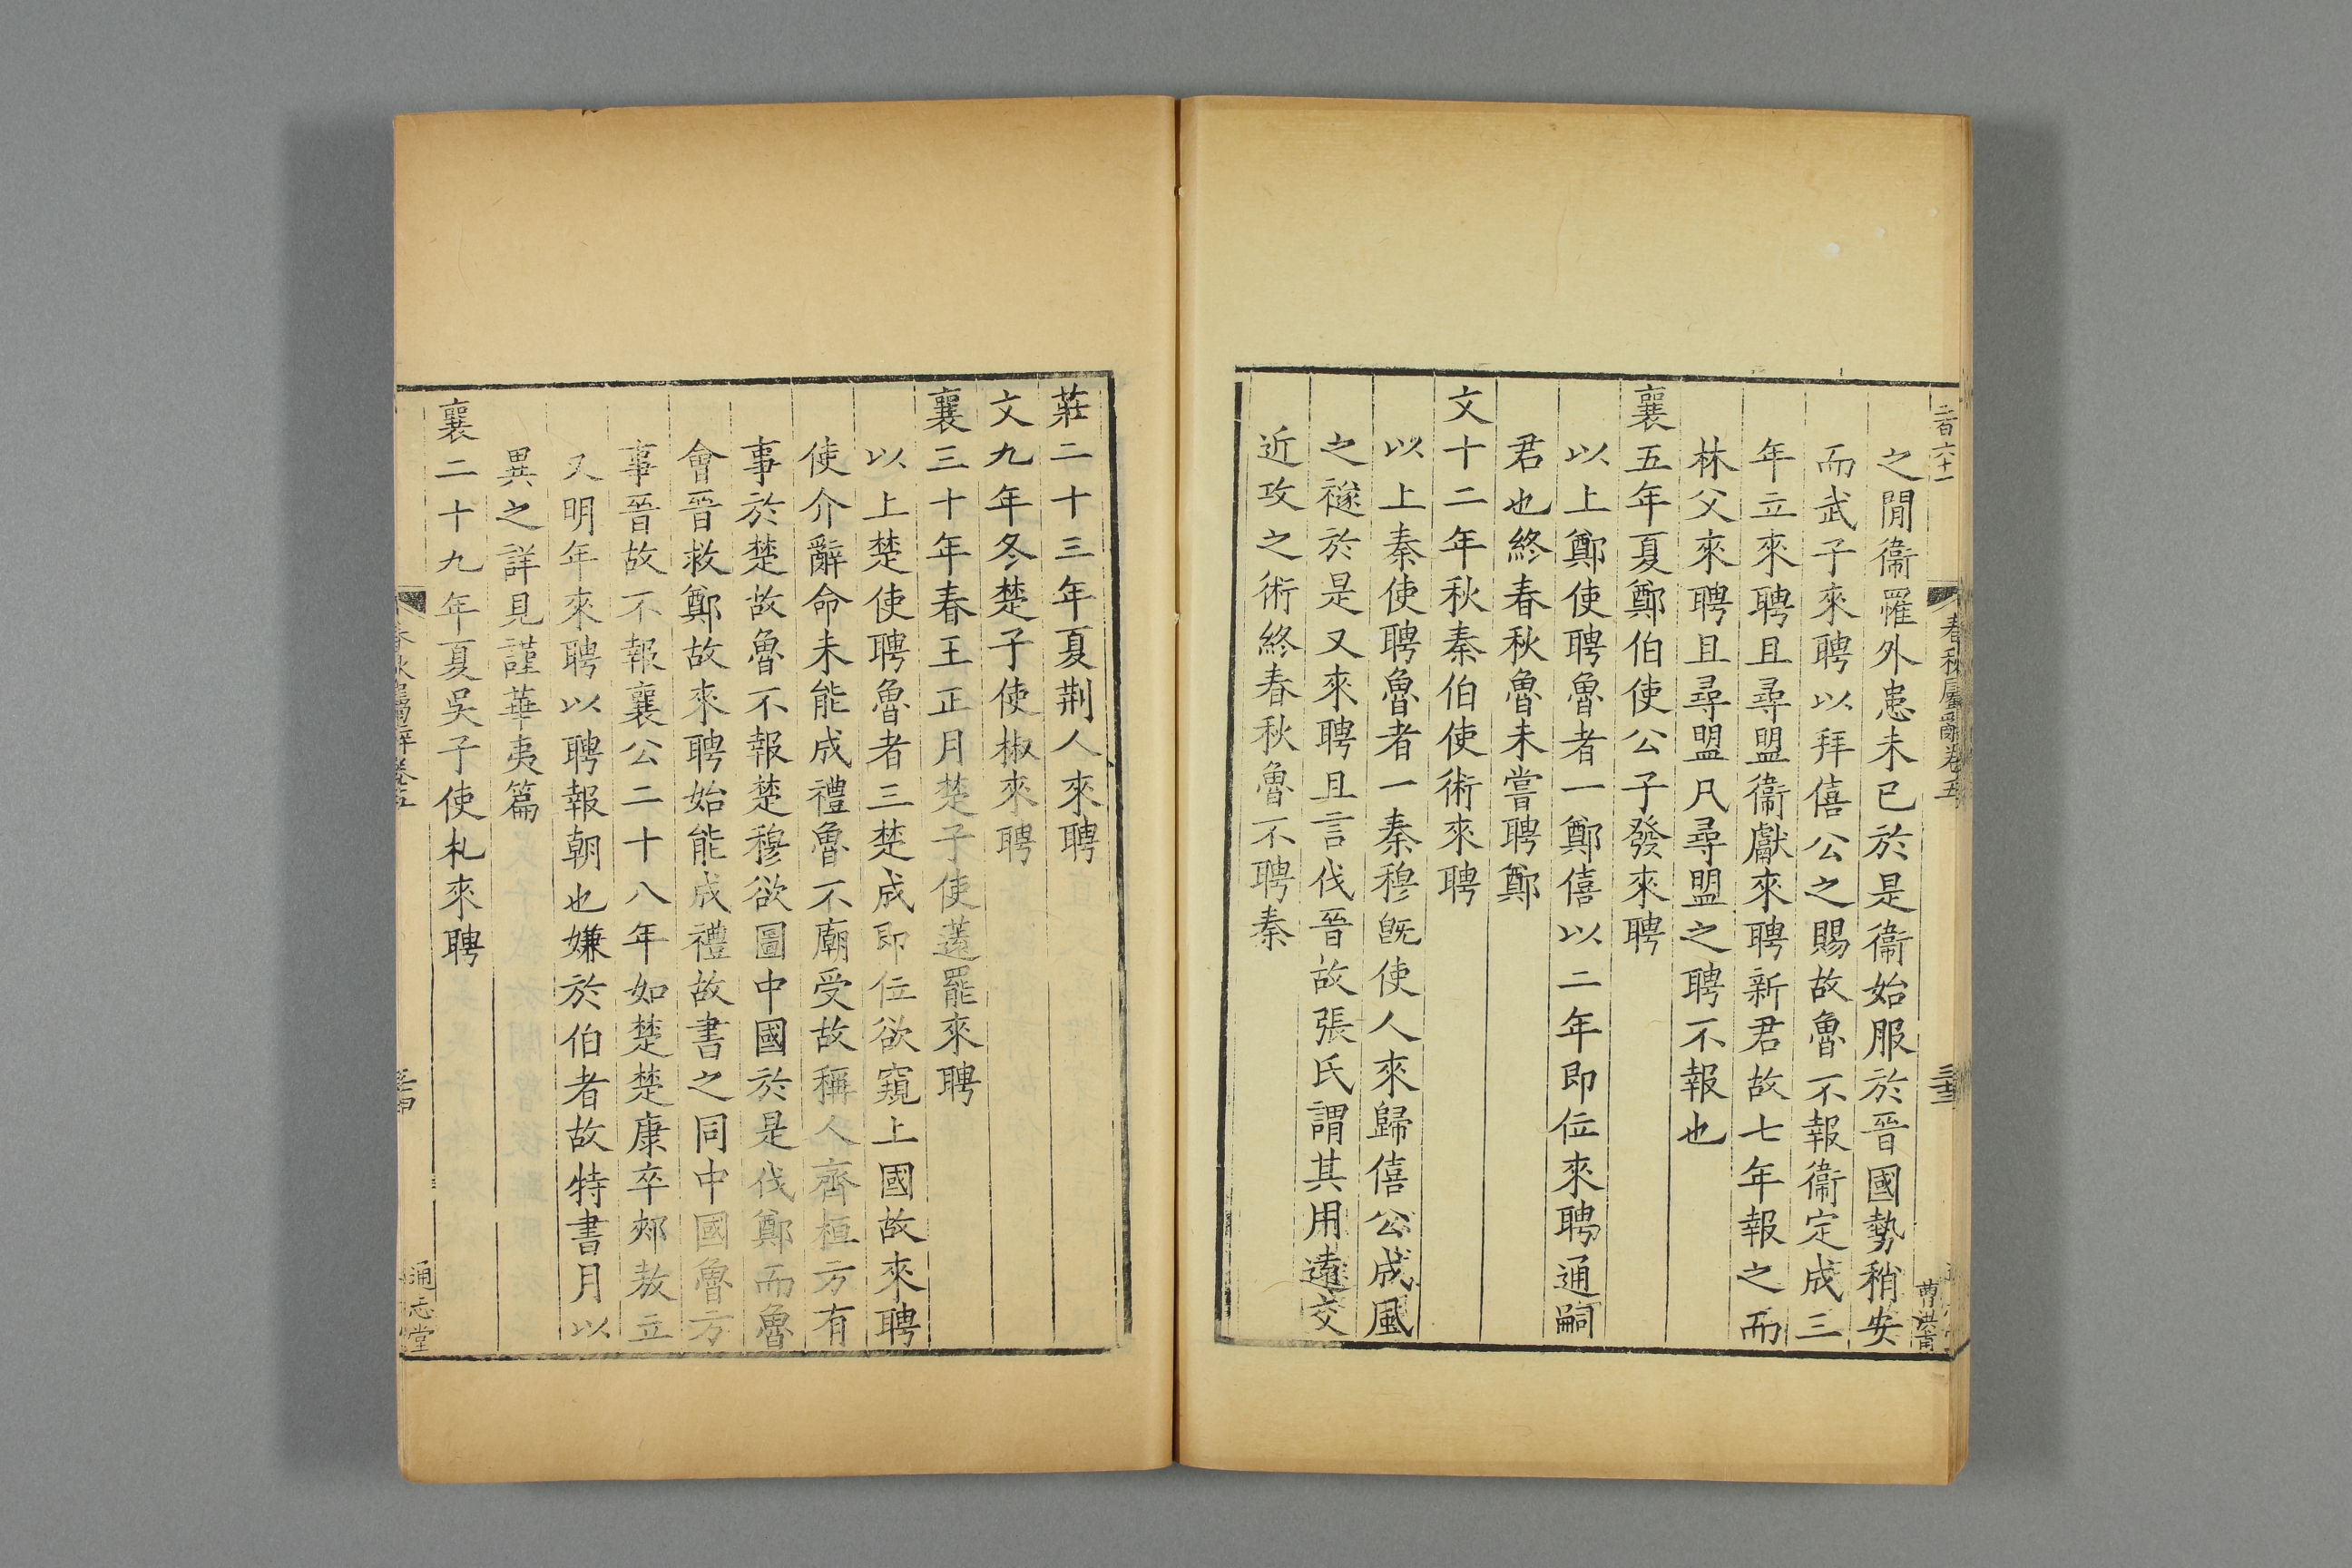 二百六十一
春秋屬辭卷五
三十三
曹洪甫
之閒衞罹外患未已於是衞始服於晉國勢稍安
而武子來聘以拜僖公之賜故魯不報衞定成三
年立來聘且尋盟衞獻來聘新君故七年報之而
林父來聘且尋盟凡尋盟之聘不報也
襄五年夏鄭伯使公子發來聘
以上鄭使聘魯者一鄭僖以二年即位來聘通嗣
君也終春秋魯未嘗聘鄭
文十二年秋秦伯使術來聘
以上秦使聘魯者一秦穆旣使人來歸僖公成風
之襚於是又來聘且言伐晉故張氏謂其用遠交
近攻之術終春秋魯不聘秦
莊二十三年夏荆人來聘
文九年冬楚子使椒來聘
襄三十年春王正月楚子使薳罷來聘
以上楚使聘魯者三楚成即位欲窺上國故來聘
使介辭命未能成禮魯不廟受故稱人齊桓方有
事於楚故魯不報楚穆欲圖中國於是伐鄭而魯
會晉救鄭故來聘始能成禮故書之同中國魯方
事晉故不報襄公二十八年如楚楚康卒郟敖立
又明年來聘以聘報朝也嫌於伯者故特書月以
異之詳見謹華夷篇
襄二十九年夏吳子使札來聘
春秋屬辭卷五
三十四
通志堂